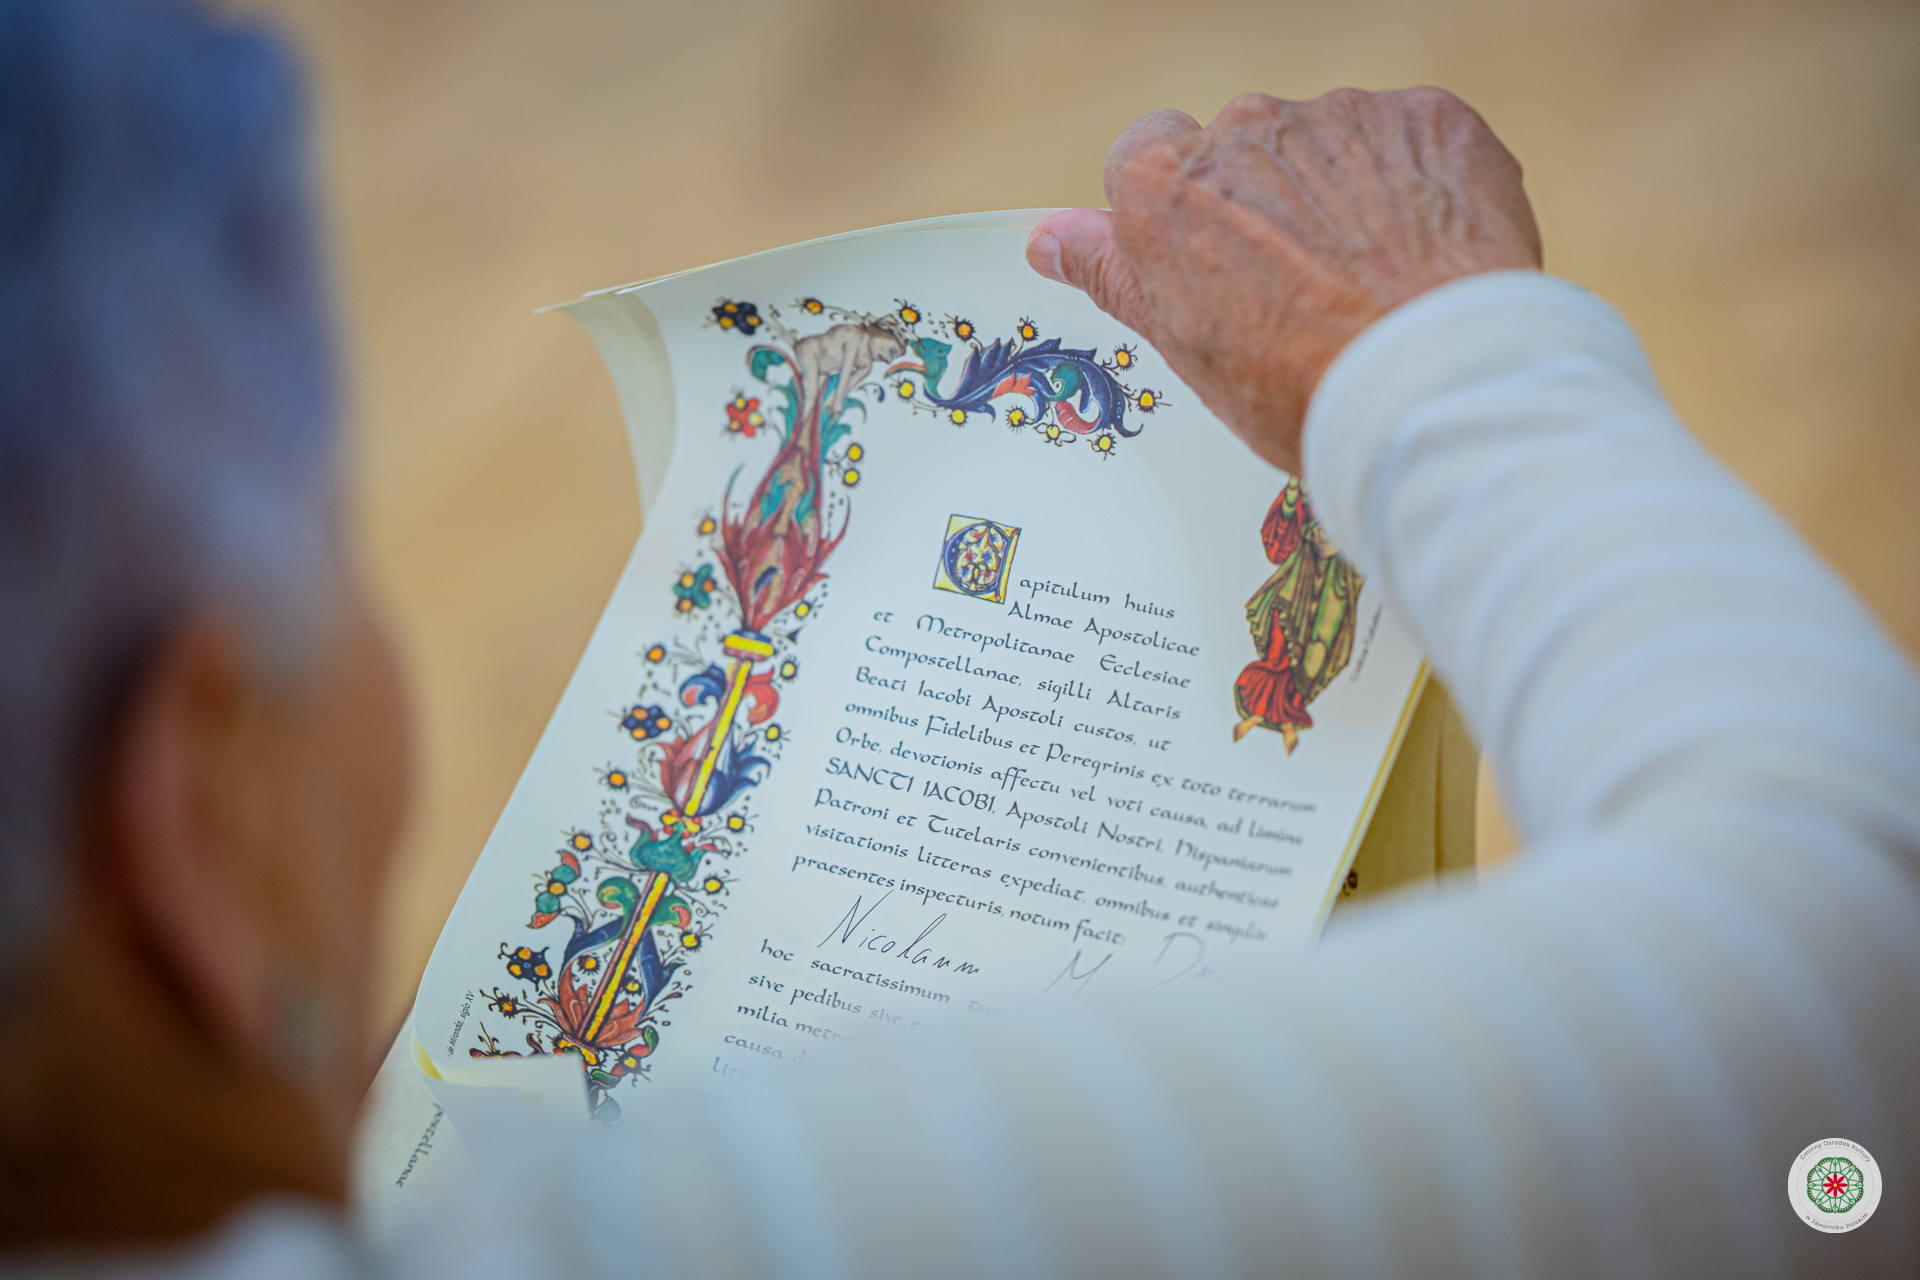 Capitulum huius
Almae Apostolicae
et Metropolitanae Ecclesiae
Compostellanae, sigilli Altaris
Beati Iacobi Apostoli custos, ut
omnibus Fidelibus et Peregrinis ex toto terrarum
Orbe, devotionis affectu vel voti causa, ad limina
SANCTI IACOBI, Apostoli Nostri, Hispaniarum
Patroni et Tutelaris convenientibus, authenticas
visitationis litteras expediat, omnibus et singulis
praesentes inspecturis, notum facit:
Nicolaum
hoc sacratissimum
sive pedibus sive
milia
causa
de Miranda, siglo XV
Gminny Ośrodek Kultury
w Jaworniku Polskim